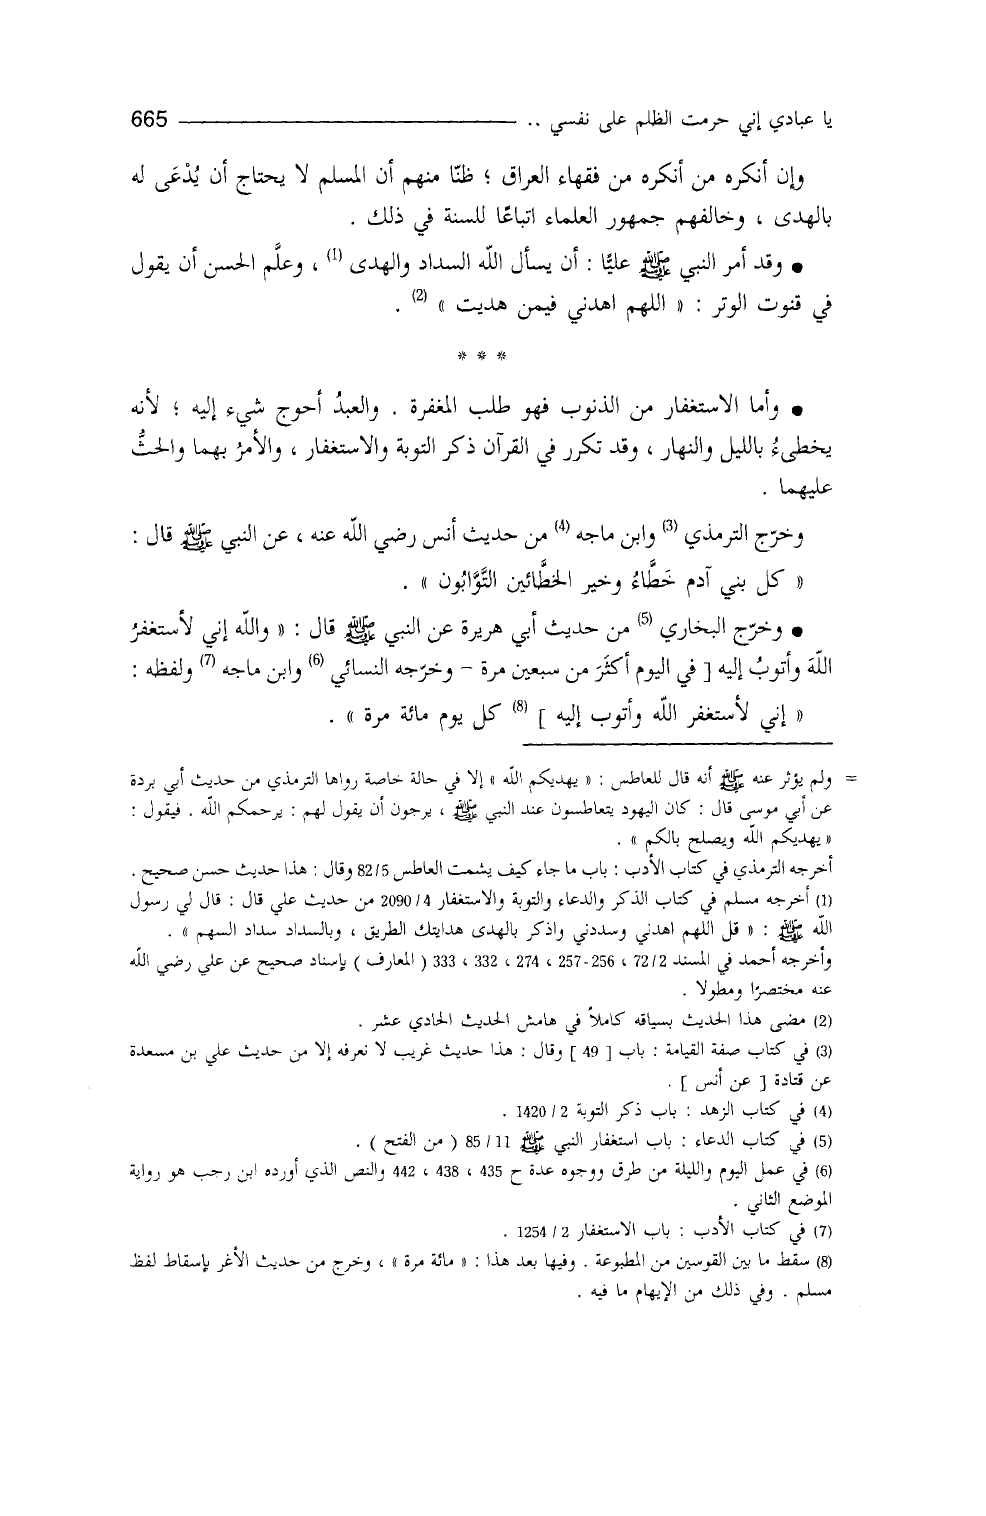 يا عبادي إني حرمت الظلم على نفسي .. 665
وإن أنكره من أنكره من فقهاء العراق ؛ ظنّا منهم أن المسلم لا يحتاج أن يُدْعَى له
بالهدى ، وخالفهم جمهور العلماء اتباعًا للسنة في ذلك .
● وقد أمر النبي ﷺ عليًّا : أن يسأل اللّه السداد والهدى (1) ، وعلَّم الحسن أن يقول
في قنوت الوتر : « اللهم اهدني فيمن هديت » (2) .
* * *
● وأما الاستغفار من الذنوب فهو طلب المغفرة . والعبدُ أحوج شيء إليه ؛ لأنه
يخطىءُ بالليل والنهار ، وقد تكرر في القرآن ذكر التوبة والاستغفار ، والأمرُ بهما والحثُّ
عليهما .
وخرّج الترمذي (3) وابن ماجه (4) من حديث أنس رضي اللّه عنه ، عن النبي ﷺ قال :
« كل بني آدم خَطَّاءُ وخير الخطَّائين التَّوَّابُون » .
● وخرّج البخاري (5) من حديث أبي هريرة عن النبي ﷺ قال : « واللّه إني لأستغفرُ
اللّهَ وأتوبُ إليه [ في اليوم أكثَرَ من سبعين مرة – وخرّجه النسائي (6) وابن ماجه (7) ولفظه :
« إني لأستغفر اللّه وأتوب إليه ] (8) كل يوم مائة مرة » .
= ولم يؤثر عنه ﷺ أنه قال للعاطس : « يهديكم اللّه » إلا في حالة خاصة رواها الترمذي من حديث أبي بردة
عن أبي موسى قال : كان اليهود يتعاطسون عند النبي ﷺ ، يرجون أن يقول لهم : يرحمكم اللّه . فيقول :
« يهديكم اللّه ويصلح بالكم » .
أخرجه الترمذي في كتاب الأدب : باب ما جاء كيف يشمت العاطس 82/5 وقال : هذا حديث حسن صحيح .
(1) أخرجه مسلم في كتاب الذكر والدعاء والتوبة والاستغفار 2090/4 من حديث علي قال : قال لي رسول
اللّه ﷺ : « قل اللهم اهدني وسددني واذكر بالهدى هدايتك الطريق ، وبالسداد سداد السهم » .
وأخرجه أحمد في المسند 72/2 ، 256-257 ، 274 ، 332 ، 333 ( المعارف ) بإسناد صحيح عن علي رضي اللّه
عنه مختصرًا ومطولا .
(2) مضى هذا الحديث بسياقه كاملاً في هامش الحديث الحادي عشر .
(3) في كتاب صفة القيامة : باب [ 49 ] وقال : هذا حديث غريب لا نعرفه إلا من حديث علي بن مسعدة
عن قتادة [ عن أنس ] .
(4) في كتاب الزهد : باب ذكر التوبة 2 / 1420 .
(5) في كتاب الدعاء : باب استغفار النبي ﷺ 11 / 85 ( من الفتح ) .
(6) في عمل اليوم والليلة من طرق ووجوه عدة ح 435 ، 438 ، 442 والنص الذي أورده ابن رجب هو رواية
الموضع الثاني .
(7) في كتاب الأدب : باب الاستغفار 2 / 1254 .
(8) سقط ما بين القوسين من المطبوعة . وفيها بعد هذا : « مائة مرة » ، وخرج من حديث الأغر بإسقاط لفظ
مسلم . وفي ذلك من الإيهام ما فيه .